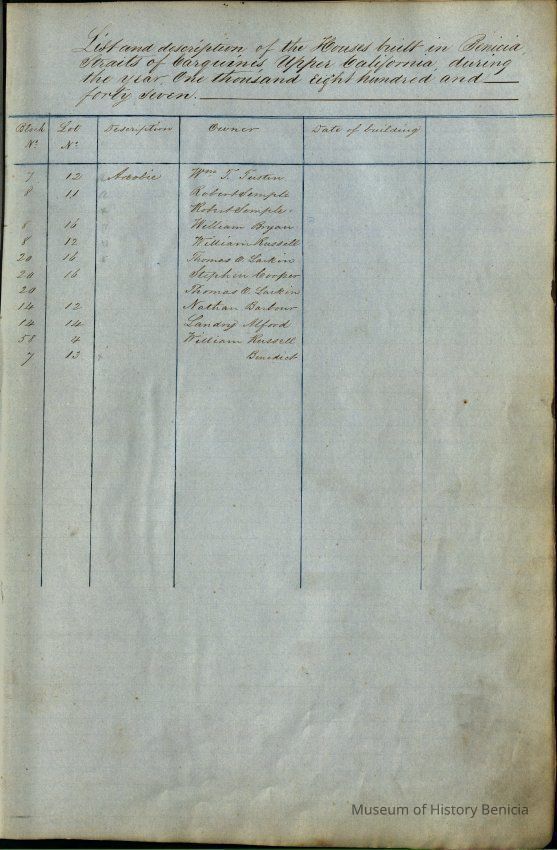 List and description of the Houses built in Benicia,
Straits of Carquines Upper California, during
the year One thousand Eight hundred and
forty seven.
Block Lot Description Owner Date of building
Nº. Nº.
7 12 Wm T. Tustin
8 11 Robert Semple
Robert Semple.
8 16 William Bryan
8 12 William Russell
20 16 Thomas O. Larkin
20 16 Stephen Cooper
20 Thomas O. Larkin
14 12 Nathan Barbour
14 14 Landry Alford
58 4 William Russell
7 13 Benedict
Museum of History Benicia